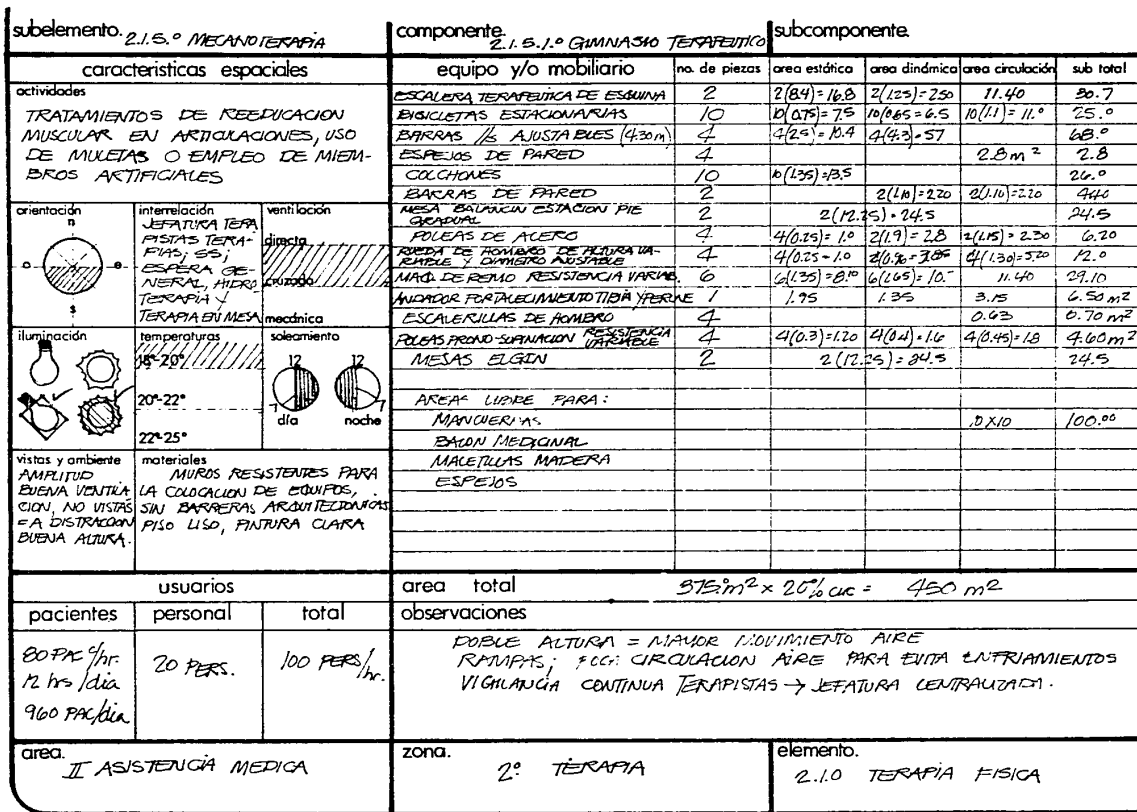 subelemento. 2.1.5.º MECANOTERAPIA
componente. 2.1.5.1.º GIMNASIO TERAPEUTICO
subcomponente.
caracteristicas espaciales
actividades
TRATAMIENTOS DE REEDUCACION
MUSCULAR EN ARTICULACIONES, USO
DE MULETAS O EMPLEO DE MIEM-
BROS ARTIFICIALES
orientación
n
o e
s
interrelación
JEFATURA TERA
PISTAS TERA-
PIAS; SS;
ESPERA GE-
NERAL, HIDRO
TERAPIA Y
TERAPIA EN MESA
ventilación
directa
cruzada
mecánica
iluminación
temperaturas
18°-20°
20°-22°
22°-25°
soleamiento
12 12
7 7
día noche
vistas y ambiente
AMPLITUD
BUENA VENTILA
CION, NO VISTAS
=A DISTRACCION
BUENA ALTURA.
materiales
MUROS RESISTENTES PARA
LA COLOCACION DE EQUIPOS,
SIN BARRERAS ARQUITECTONICAS
PISO LISO, PINTURA CLARA
equipo y/o mobiliario no. de piezas area estática area dinámica area circulación sub total
ESCALERA TERAPEUTICA DE ESQUINA 2 2(8.4)=16.8 2(1.25)=2.50 11.40 30.7
BICICLETAS ESTACIONARIAS 10 10(0.75)=7.5 10(0.65=6.5 10(1.1)=11.º 25.º
BARRAS //s AJUSTABLES (4.30m) 4 4(2.5)=10.4 4(4.3)=57 68.º
ESPEJOS DE PARED 4 2.8m² 2.8
COLCHONES 10 10(1.35)=13.5 26.º
BARRAS DE PARED 2 2(1.10)=2.20 2(1.10)=2.20 4.40
MESA BALANCIN ESTACION PIE GRADUAL 2 2(12.25)=24.5 24.5
POLEAS DE ACERO 4 4(0.25)=1.0 2(1.9)=2.8 2(1.15)=2.30 6.20
RUEDA DE HOMBRO DE ALTURA VA-
RIABLE Y DIAMETRO AJUSTABLE 4 4(0.25=1.0 4(1.30)=5.20 12.0
MAQ. DE REMO RESISTENCIA VARIAB. 6 6(1.35)=8.10 6(1.65)=10.- 11.40 29.10
ANDADOR FORTALECIMIENTO TIBIA Y PERNE 1 1.95 1.35 3.15 6.50 m2
ESCALERILLAS DE HOMBRO 4 0.63 0.70 m²
POLEAS PRONO-SUPINACION RESISTENCIA VARIABLE 4 4(0.3)=1.20 4(0.4)=1.6 4(0.45)=1.8 4.60 m²
MESAS ELGIN 2 2(12.25)=24.5 24.5
AREA LIBRE PARA:
MANCUERNAS 0X10 100.00
BALON MEDICINAL
MALETILLAS MADERA
ESPEJOS
area total 375.º m² x 20% circ = 450 m²
usuarios
pacientes personal total
80 PAC c/hr.
12 hrs/dia
960 PAC/dia
20 PERS.
100 PERS/hr.
observaciones
DOBLE ALTURA = MAYOR MOVIMIENTO AIRE
RAMPAS; CIRCULACION AIRE PARA EVITA ENFRIAMIENTOS
VIGILANCIA CONTINUA TERAPISTAS → JEFATURA CENTRALIZADA.
area. II ASISTENCIA MEDICA
zona. 2º TERAPIA
elemento. 2.1.0 TERAPIA FISICA